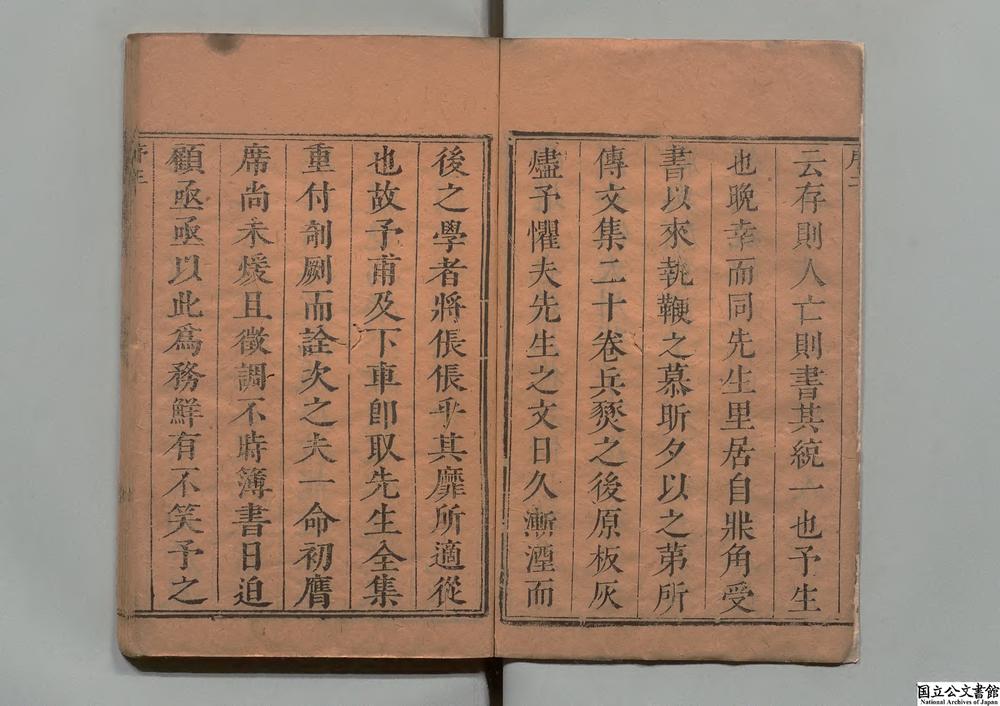 云存則人亡則書其統一也予生
也晚幸而同先生里居自丱角受
書以來執鞭之慕昕夕以之第所
傳文集二十卷兵燹之後原板灰
燼予懼夫先生之文日久漸湮而
後之學者將倀倀乎其靡所適從
也故予甫及下車即取先生全集
重付剞劂而詮次之夫一命初膺
席尚未煖且徵調不時簿書日迫
顧亟亟以此爲務鮮有不笑予之
国立公文書館
National Archives of Japan